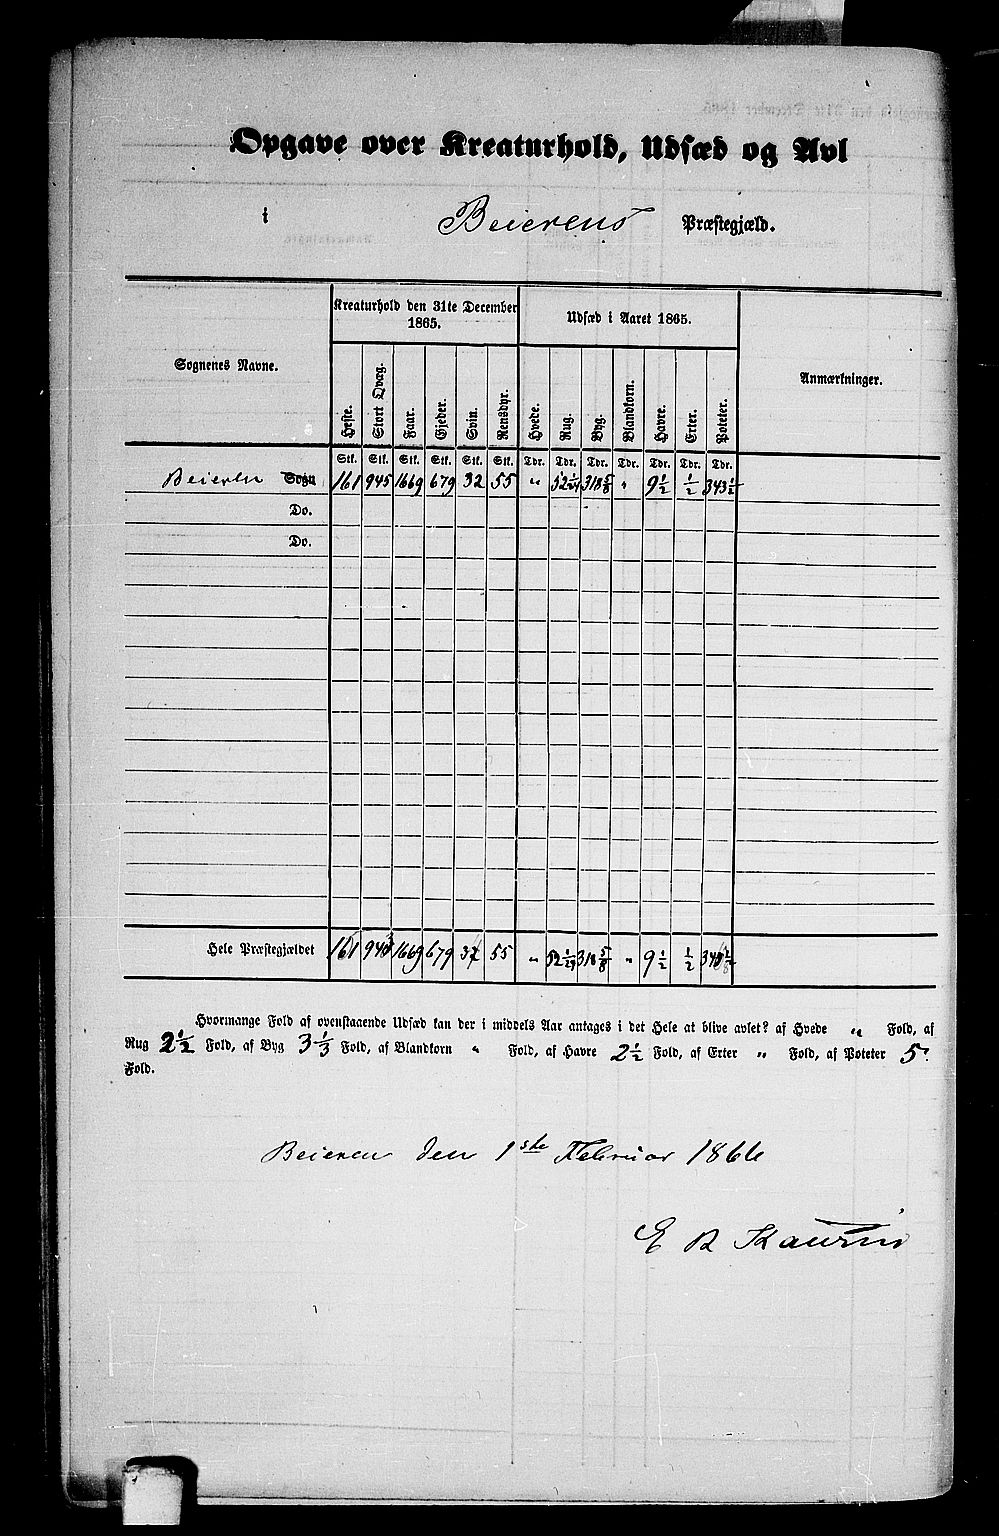 Opgave over Kreaturhold, Udsæd og Avl
i Beierens Præstegjæld.
Sognenes Navne. Kreaturhold den 31te December 1865. Udsæd i Aaret 1865. Anmærkninger.
Heste. Stort Qvæg. Faar. Gjeder. Svin. Rensdyr. Hvede. Rug. Byg. Blandkorn. Havre. Erter. Poteter.
Stk. Stk. Stk. Stk. Stk. Stk. Tdr. Tdr. Tdr. Tdr. Tdr. Tdr. Tdr.
Beieren Sogn 161 945 1669 679 32 55 " 52 1/24 318 5/8 " 9 1/2 1/2 343 1/2
Do.
Do.
Hele Præstegjældet 161 1669 679 55 " 52 1/24 318 5/8 " 9 1/2 1/2
Hvormange Fold af ovenstaaende Udsæd kan der i middels Aar antages i det Hele at blive avlet? af Hvede " Fold, af
Rug 2 1/2 Fold, af Byg 3 1/3 Fold, af Blandkorn " Fold, af Havre 2 1/2 Fold, af Erter " Fold, af Poteter 5
Fold.
Beieren den 1ste Februar 1866
E B Kaurin